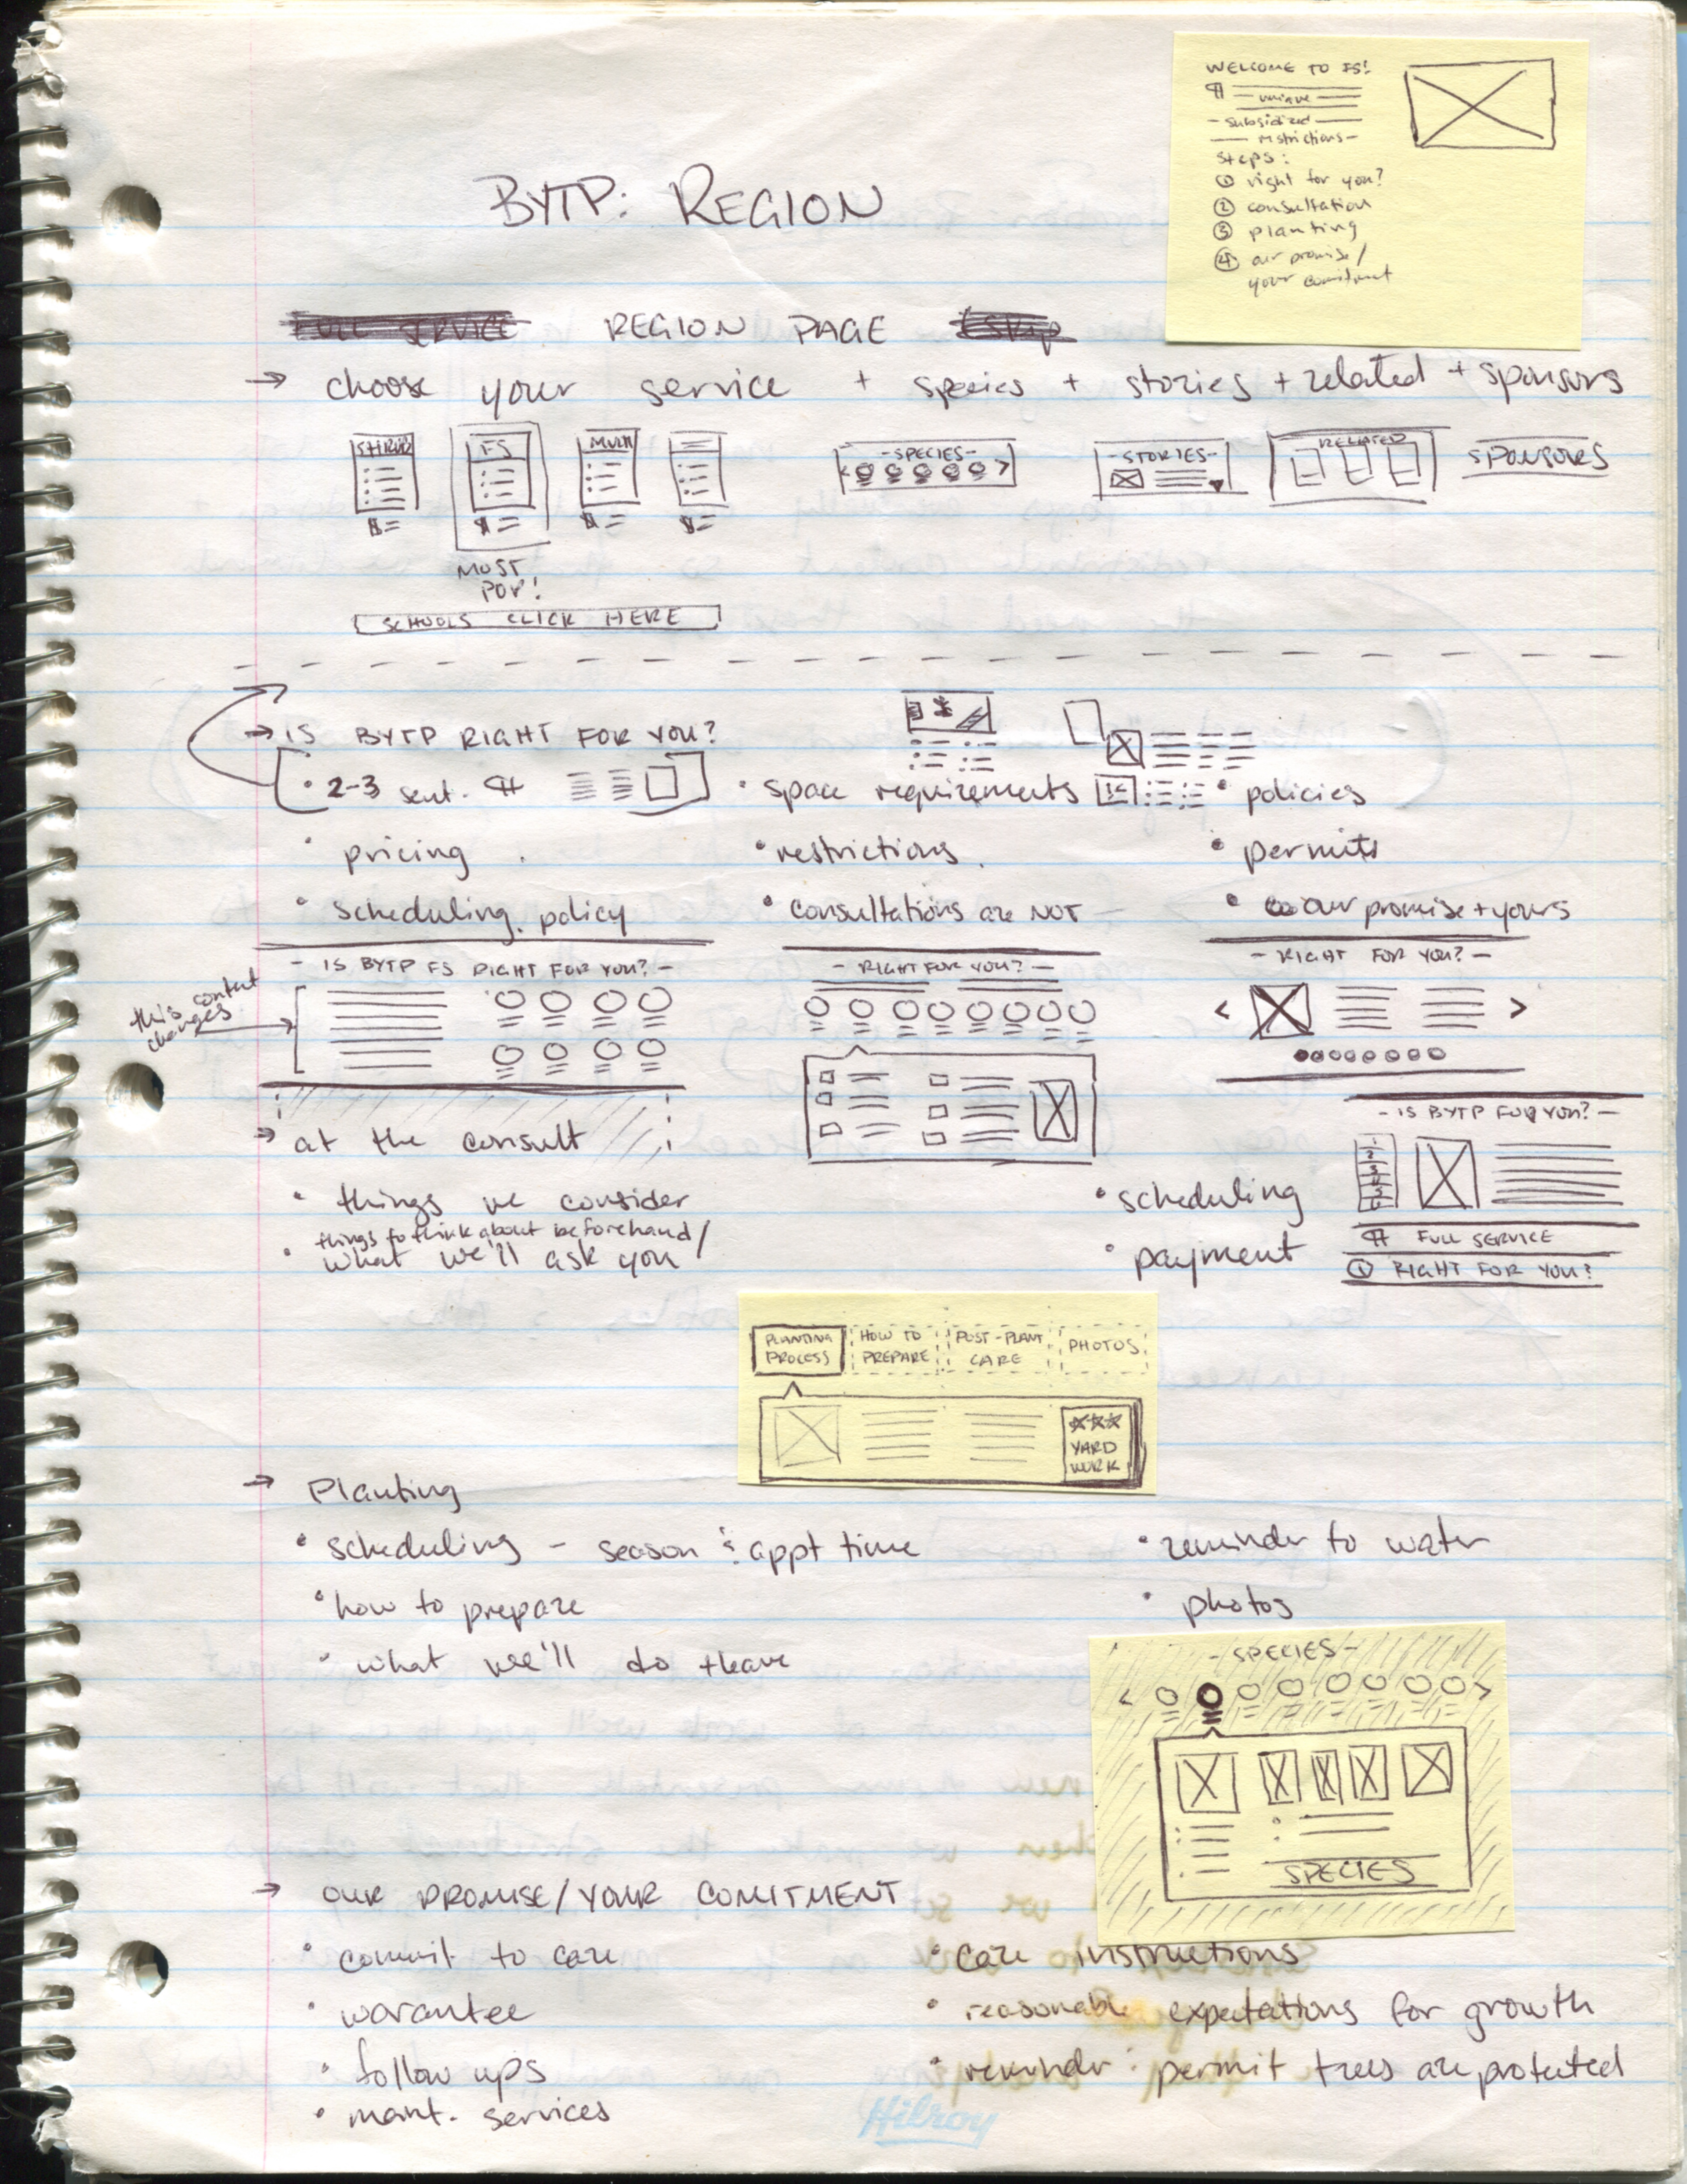 WELCOME TO FS!
¶ unique
subsidized
restrictions
steps:
① right for you?
② consultation
③ planting
④ our promise/
your comitment
BYTP: REGION
FULL SERVICE REGION PAGE
→ choose your service + species + stories + related + sponsors
SHRUB FS MULTI
-SPECIES-
-STORIES-
RELATED
SPONSORS
$= $= $= $=
MOST
POP!
SCHOOLS CLICK HERE
→ IS BYTP RIGHT FOR YOU?
• 2-3 sent. ¶
• space requirements
• policies
• pricing
• restrictions
• permits
• scheduling policy
• consultations are NOT
• our promise + yours
this content
changes
- IS BYTP FS RIGHT FOR YOU? -
- RIGHT FOR YOU? -
- RIGHT FOR YOU? -
- IS BYTP FOR YOU? -
→ at the consult
• things we consider
things to think about beforehand/
• what we'll ask you
• scheduling
• payment
¶ FULL SERVICE
① RIGHT FOR YOU?
PLANTING
PROCESS
HOW TO
PREPARE
POST-PLANT
CARE
PHOTOS
YARD
WORK
→ Planting
• scheduling - season & appt time
• reminder to water
• how to prepare
• photos
• what we'll do + leave
- SPECIES -
SPECIES
→ OUR PROMISE/YOUR COMITMENT
• commit to care
• care instructions
• warantee
• reasonable expectations for growth
• follow ups
• reminder: permit trees are protected
• maint. services
Hilroy